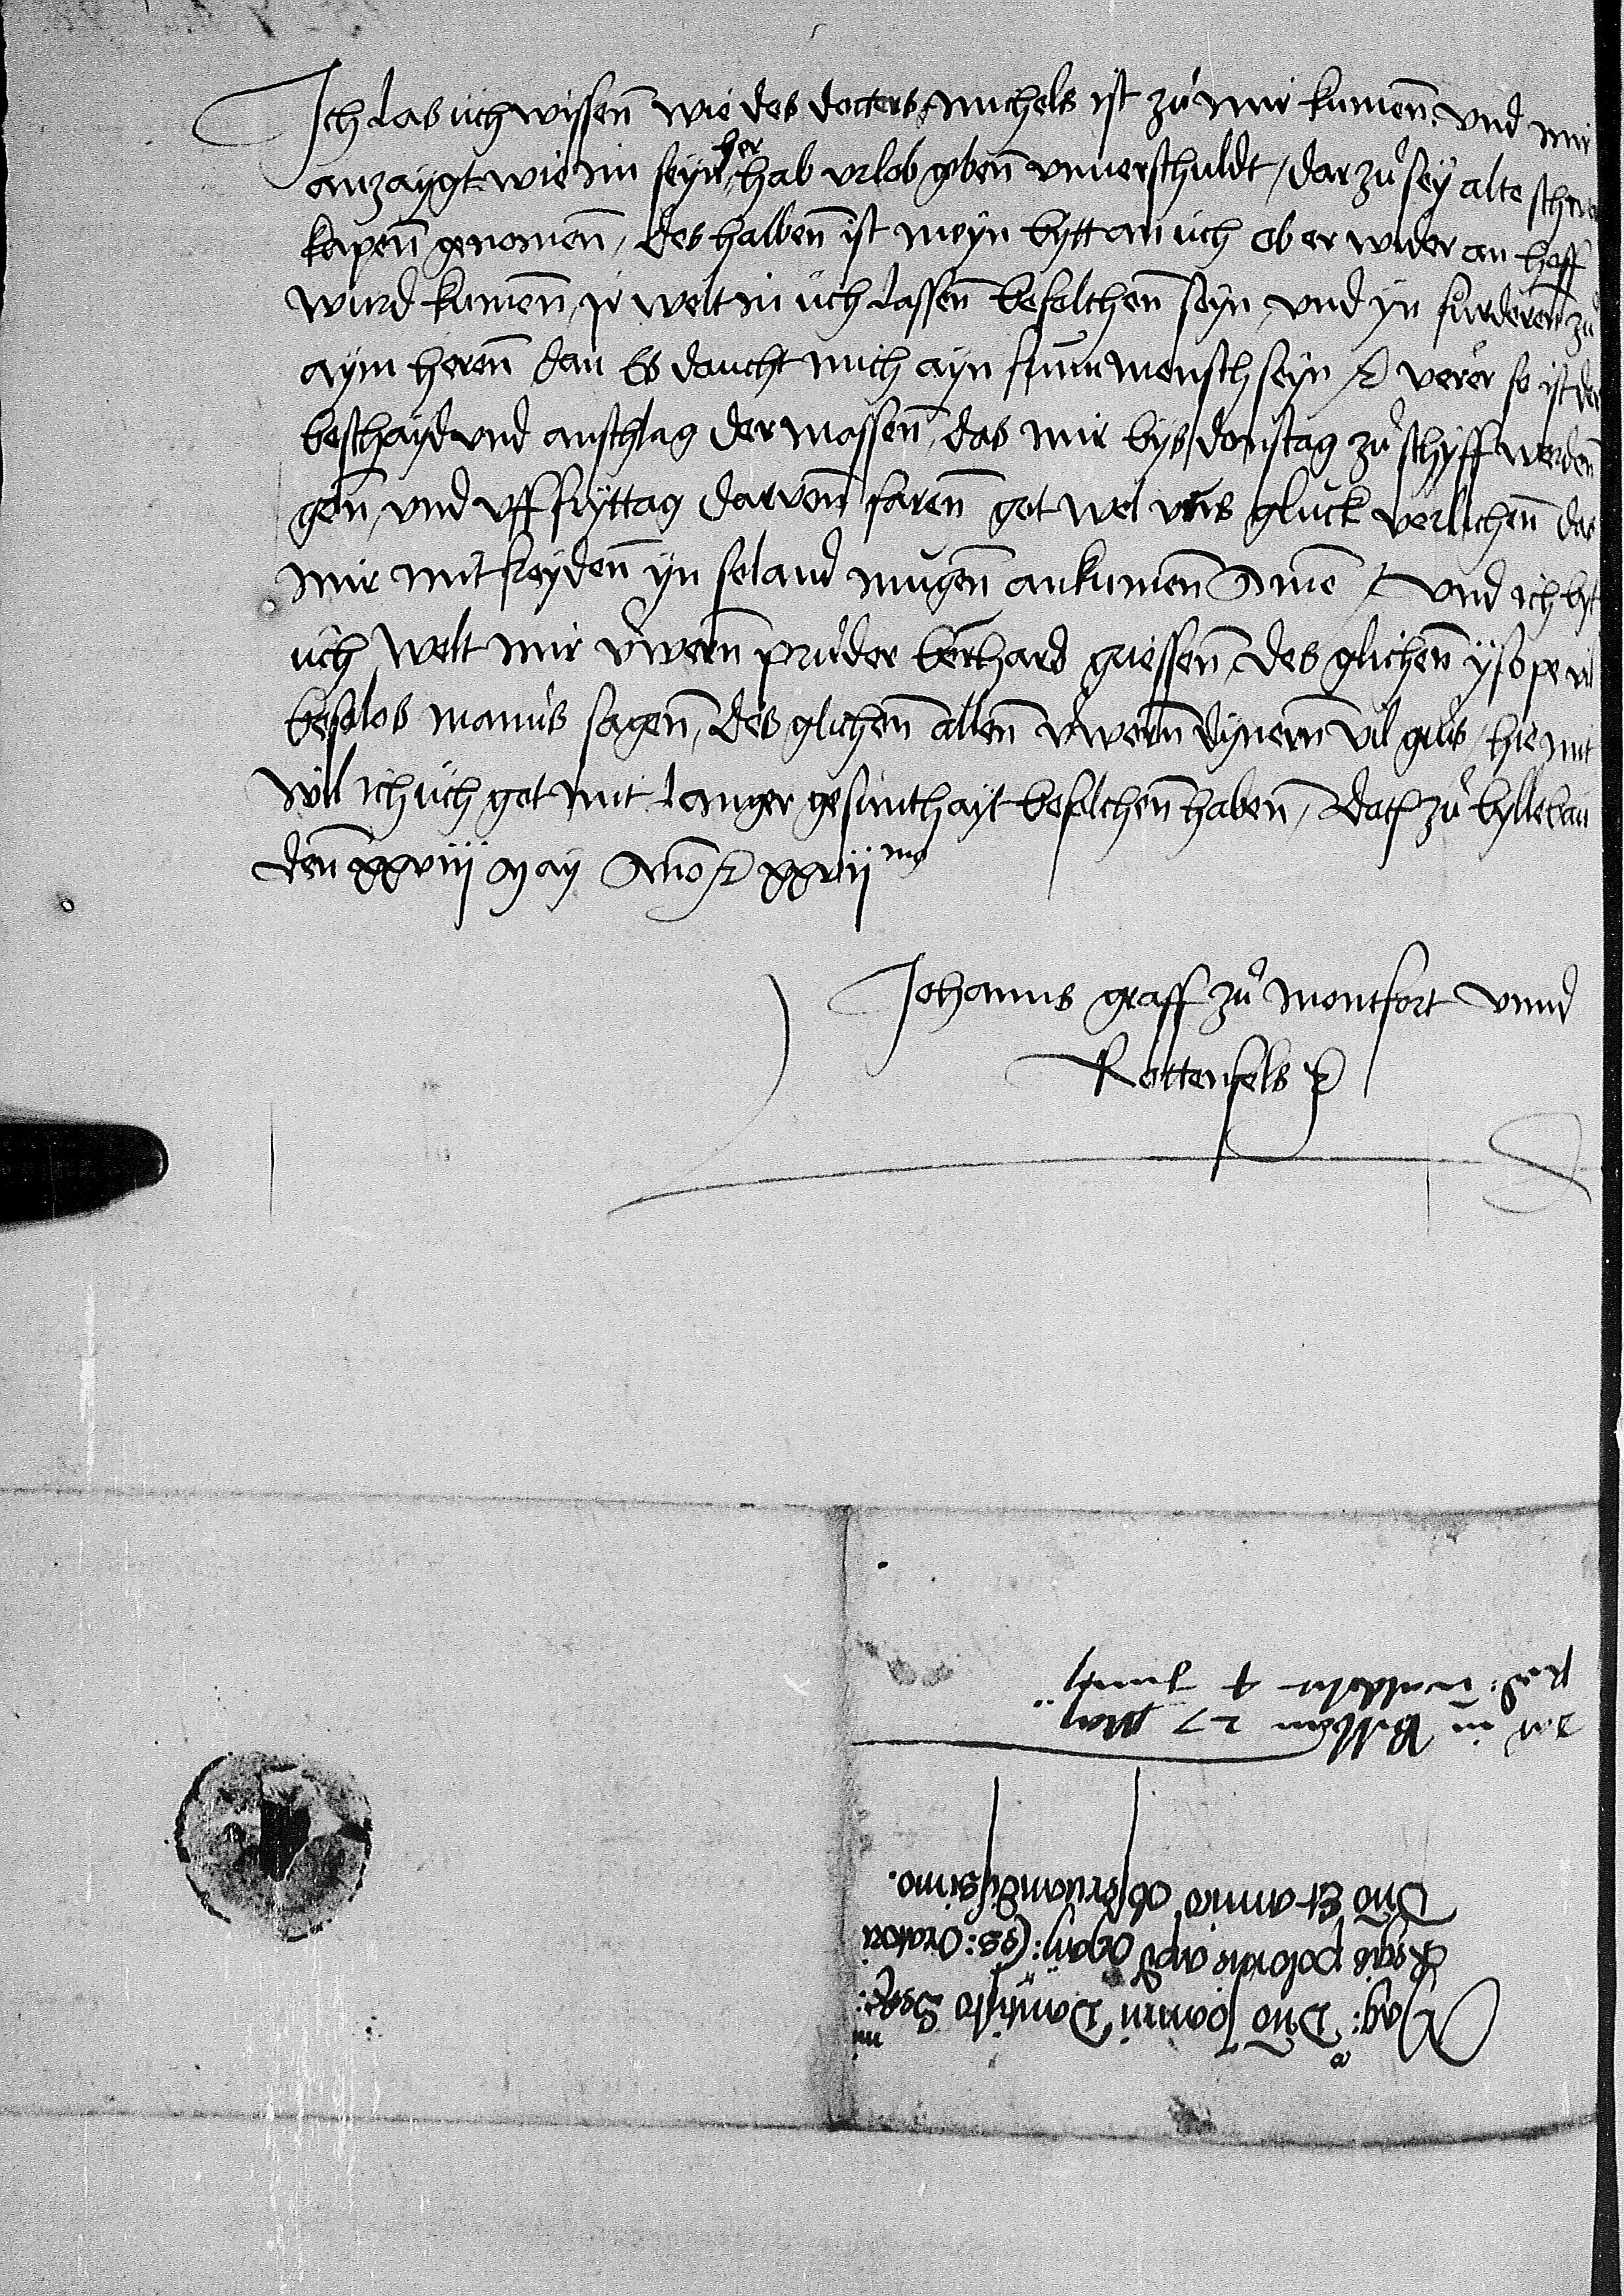 Ich las üch wissenn wie des docters michels ist zů mir kumenn und mir
anzaygt wie im seyn her hab urlob gebenn unverschuldt / dar zů sey alte
kapenn genomenn / des halbenn ist meyn bytt an üch ob er wider an hoff
wurd kumenn, ir welt in üch lassenn befelchenn seyn, und yn furderenn zů
aym herenn dan Es daucht mich ayn frum mensch seyn etc verer so ist der
beschayd und anschlag der massenn, das mir bys donstag zů schyff werdenn
gen, und uff fryttag darvonn farenn got wel uns gluck verlichenn das
mir mit freydenn yn seland mugenn ankumenn Ame etc und ich byt
üch welt mir üwernn pruder bernhard griessenn des glichenn ysope vil
besolos manus sagenn, des glichenn allenn üwernn dynernn vil gůts / hie mit
wil ich üch got mit langer gesunthayt befelchenn habenn, Datum zů byllebau
denn xxviij may Anno etc xxvii mo
Johanns graff zů montfort unnd
Rottenfels etc
Mag: co Dno Joanni Dantisco Sere: mi
Regis polonie apud Cesa: (et)c: Oratori
Dno Et amico observandissimo.
dat in Bilbau 27 May
Red: Valdolit 4 Juny